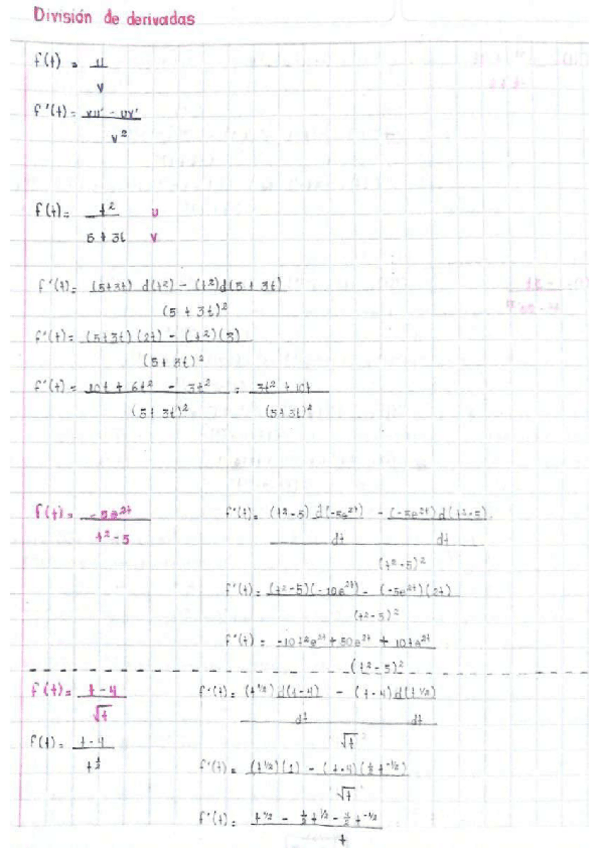 División de derivadas
f(t) = u/v
f'(t) = (vu' - uv')/v²
f(t) = t²/(5 + 3t) u v
f'(t) = ((5+3t) d(t²) - (t²)d(5+3t))/(5 + 3t)²
f'(t) = ((5+3t)(2t) - (t²)(3))/(5+3t)²
f'(t) = (10t + 6t² - 3t²)/(5+3t)² = (3t² + 10t)/(5+3t)²
f(t) = -5e^(2t)/(t² - 5)
f'(t) = ((t²-5) d(-5e^(2t))/dt - (-5e^(2t)) d(t²-5)/dt)/(t²-5)²
f'(t) = ((t²-5)(-10e^(2t)) - (-5e^(2t))(2t))/(t²-5)²
f'(t) = (-10t²e^(2t) + 50e^(2t) + 10te^(2t))/(t²-5)²
f(t) = (t-4)/√t
f'(t) = ((t^(1/2)) d(t-4)/dt - (t-4) d(t^(1/2))/dt)/√t²
f(t) = (t-4)/t^(1/2)
f'(t) = ((t^(1/2))(1) - (t-4)(½t^(-1/2)))/√t²
f'(t) =